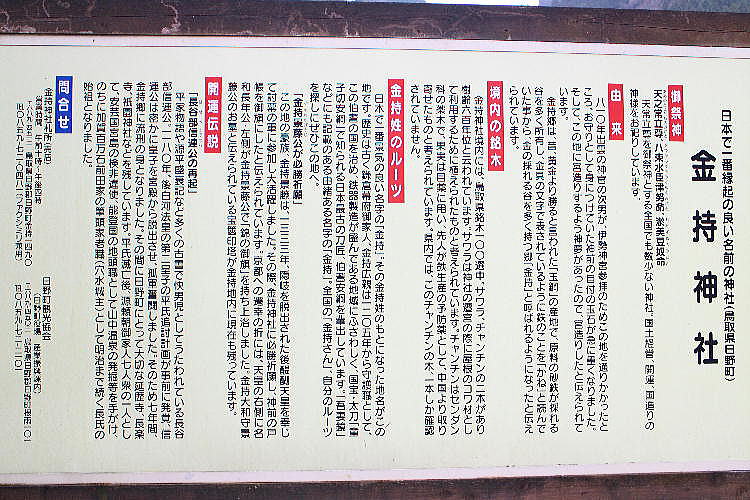 日本で一番縁起の良い名前の神社(鳥取県日野町)
金持神社
御祭神
天之常立尊、八束水臣津努命、淤美豆奴命
「天常立尊」を御祭神とする全国でも数少ない神社、国土経営、開運、国造りの
神様をお祀りしています。
由来
八一〇年出雲の神官の次男が、伊勢神宮参拝のためこの地を通りかかったと
ころ、お守りとして身につけていた神前の根付の玉石が急に重くなりました。
そして、この地に宮造りするよう神夢があったので、宮造りしたと伝えられて
います。
金持郷は、昔、黄金より勝ると言われた「玉鋼」の産地で、原料の砂鉄が採れる
谷を多く所有し、金具の文字で表されているように鉄のことを「かね」と読んで
いた事から、金の採れる谷を多く持つ郷、「金持」と呼ばれるようになったと伝え
られています。
境内の銘木
金持神社境内には、鳥取県銘木一〇〇選中、サワラ、チャンチンの二本があり
樹齢六百年位と云われています。サワラは神社の遷宮の際に屋根のコワ材とし
て利用するために植えられたものと考えられています。チャンチンはセンダン
科の喬木で、果実は目薬に用い、先人が鉄生産の予防薬として、中国より取り
寄せたものと考えられています。県内では、このチャンチンの木、一本しか確認
されていません。
金持姓のルーツ
日本で一番景気の良い名字の「金持」、その金持姓のもとになった地名がこの
地です。歴史は古く鎌倉幕府御家人、金持広親は一二〇五年から守護職として、
この伯耆の国を治め、鉄器製造が盛んである地域にふさわしく、国宝・太刀「童
子切安綱」で知られる日本最古の刀匠、伯耆安綱を輩出しています。「吾妻鏡」
などにも記載のある由緒ある名字の「金持」、全国の「金持さん」、自分のルーツ
を探しにぜひこの地へ。
「金持景藤公が必勝祈願」
この地の豪族、金持景藤は、一三三三年、隠岐を脱出された後醍醐天皇を奉じ
て討幕の軍に参加し大活躍しました。その際、金持神社に必勝祈願し、神前の戸
帳を御旗にしたと伝えられています。京都への還幸の行には、天皇の右側に名
和長年公・左側が金持景藤公で「錦の御旗」を持ち上洛しました。金持大和守景
藤公のお墓と伝えられている宝篋印塔が金持地内に現在も残っています。
開運伝説
「長谷部信連公の再起」
平家物語や源平盛衰記など多くの古書で快男児としてうたわれている長谷
部信連公は一一八〇年、後白河法皇の第二皇子の平氏追討計画が事前に発覚、信
連公は密かに皇子を宮殿から脱出させ、孤軍奮闘しました。そのため七年間、
金持郷に流刑の身となりました。その間に日野町にとって大切な延暦寺、長楽
寺、祇園神社などを残しています。平氏滅亡後、源頼朝御家人七人衆の一人とし
て、安芸国宮島の検非違使、能登国の地頭職として山中温泉の発掘等を手がけ、
のちに加賀百万石前田家の筆頭家老職(穴水城主)として明治まで続く長氏の
始祖となりました。
問合せ
金持神社札所(売店)
日野町観光協会